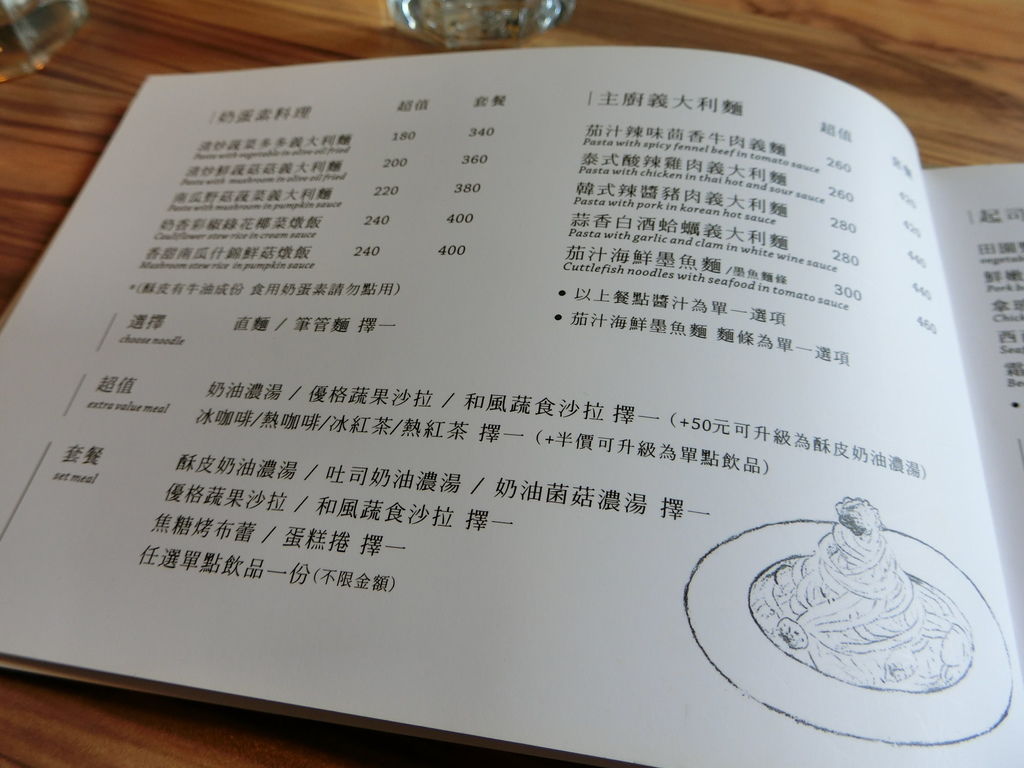 奶蛋素料理 超值 套餐
清炒蔬菜多多義大利麵 180 340
Pasta with vegetable in olive oil fried
清炒鮮蔬菇菇義大利麵 200 360
Pasta with mushroom in olive oil fried
南瓜野菇蔬菜義大利麵 220 380
Pasta with mushroom in pumpkin sauce
奶香彩椒綠花椰菜燉飯 240 400
Cauliflower stew rice in cream sauce
香甜南瓜什錦鮮菇燉飯 240 400
Mushroom stew rice in pumpkin sauce
*(酥皮有牛油成份 食用奶蛋素請勿點用)
主廚義大利麵 超值 套餐
茄汁辣味茴香牛肉義麵 260 420
Pasta with spicy fennel beef in tomato sauce
泰式酸辣雞肉義大利麵 260 420
Pasta with chicken in thai hot and sour sauce
韓式辣醬豬肉義大利麵 280 440
Pasta with pork in korean hot sauce
蒜香白酒蛤蠣義大利麵 280 440
Pasta with garlic and clam in white wine sauce
茄汁海鮮墨魚麵 /墨魚麵條 300 460
Cuttlefish noodles with seafood in tomato sauce
• 以上餐點醬汁為單一選項
• 茄汁海鮮墨魚麵 麵條為單一選項
選擇 直麵 / 筆管麵 擇一
choose noodle
超值 奶油濃湯 / 優格蔬果沙拉 / 和風蔬食沙拉 擇一 (+50元可升級為酥皮奶油濃湯)
extra value meal 冰咖啡/熱咖啡/冰紅茶/熱紅茶 擇一 (+半價可升級為單點飲品)
套餐 酥皮奶油濃湯 / 吐司奶油濃湯 / 奶油菌菇濃湯 擇一
set meal 優格蔬果沙拉 / 和風蔬食沙拉 擇一
焦糖烤布蕾 / 蛋糕捲 擇一
任選單點飲品一份(不限金額)
起司
田園
鮮嫩
拿坡
西